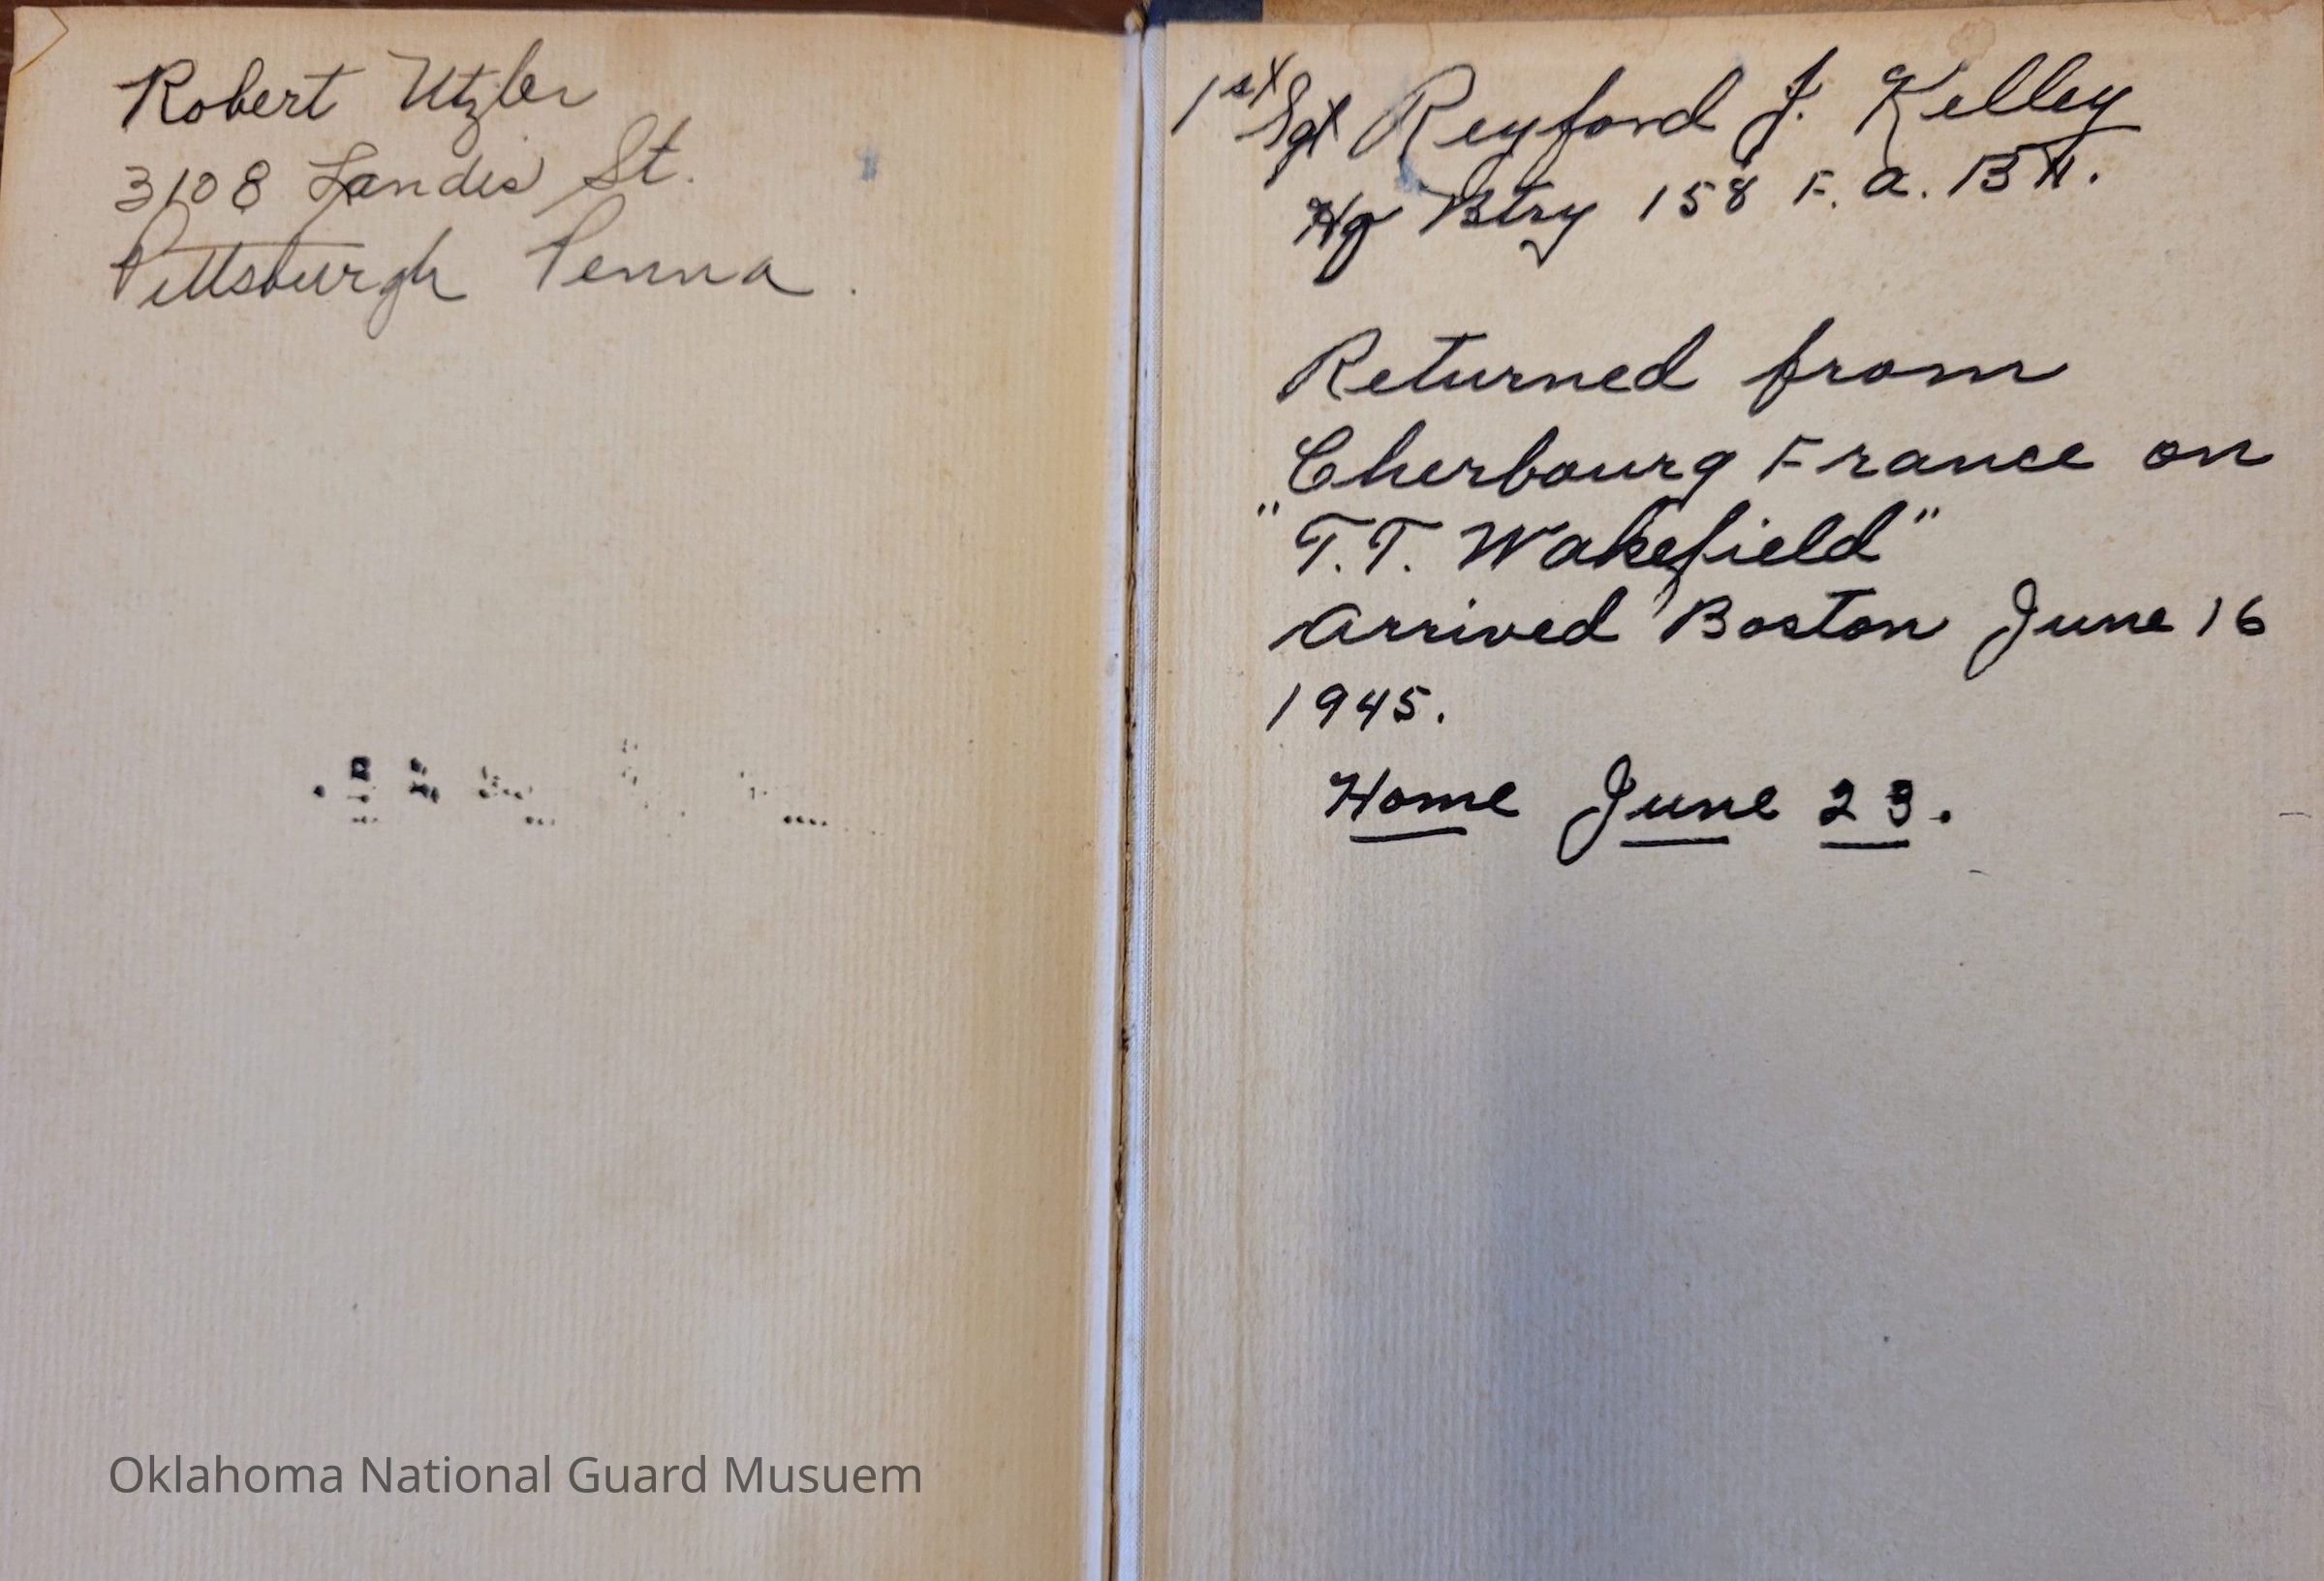 Robert Utzler
3108 Landis St.
Pittsburgh Penna.
1st Sgt Reyford J. Kelley
Hq Btry 158 F.A. BN.
Returned from
Cherbourg France on
"T.T. Wakefield"
Arrived Boston June 16
1945.
Home June 23.
Oklahoma National Guard Musuem